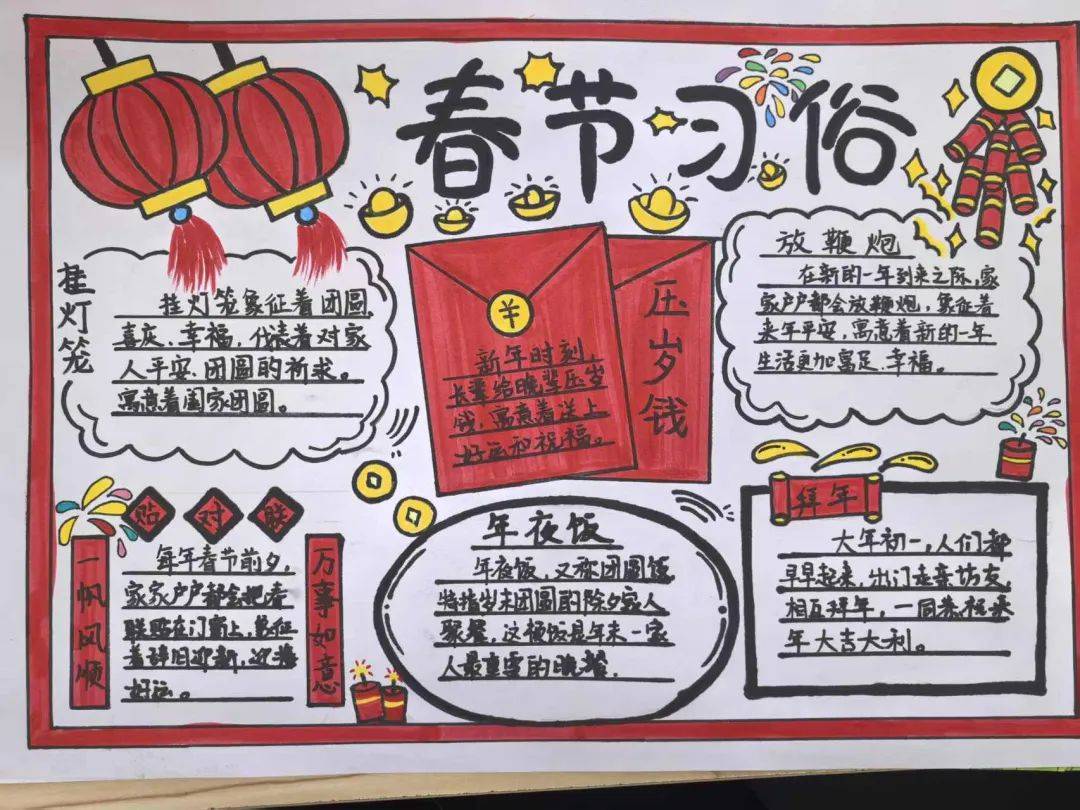 春节习俗
挂灯笼
挂灯笼象征着团圆,
喜庆、幸福,代表着对家
人平安、团圆的祈求。
寓意着阖家团圆。
¥
新年时刻,
长辈给晚辈压岁
钱,寓意着送上
好运和祝福。
压岁钱
放鞭炮
在新的一年到来之际,家
家户户都会放鞭炮,象征着
来年平安,寓意着新的一年
生活更加富足、幸福。
贴对联
一帆风顺
每年春节前夕,
家家户户都会把春
联贴在门窗上,象征
着辞旧迎新,迎接
好运。
万事如意
年夜饭
年夜饭,又称团圆饭
特指岁末团圆的除夕家人
聚餐,这顿饭是年末一家
人最重要的晚餐.
拜年
大年初一,人们都
早早起来,出门走亲访友,
相互拜年,一同恭祝来
年大吉大利。